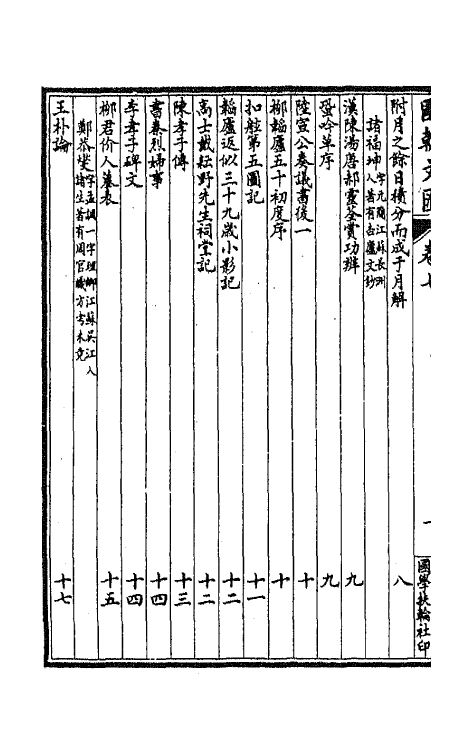 國朝文匯 卷七 一 國學扶輪社印
附月之餘日積分而成于月解 八
諸福坤 字元簡江蘇長洲人著有杏廬文鈔
漢陳湯唐郝靈荃賞功辨 九
蛩吟草序 九
陸宣公奏議書後一 十
柳韜廬五十初度序 十
扣舷第五圖記 十一
韜廬返似三十九歲小影記 十二
高士戴耘野先生祠堂記 十二
陳孝子傳 十三
書秦烈婦事 十四
李孝子碑文 十四
柳君价人墓表 十五
鄭恭燮 字孟調一字理卿江蘇吳江人諸生著有周官職方考未竟
王朴論 十七